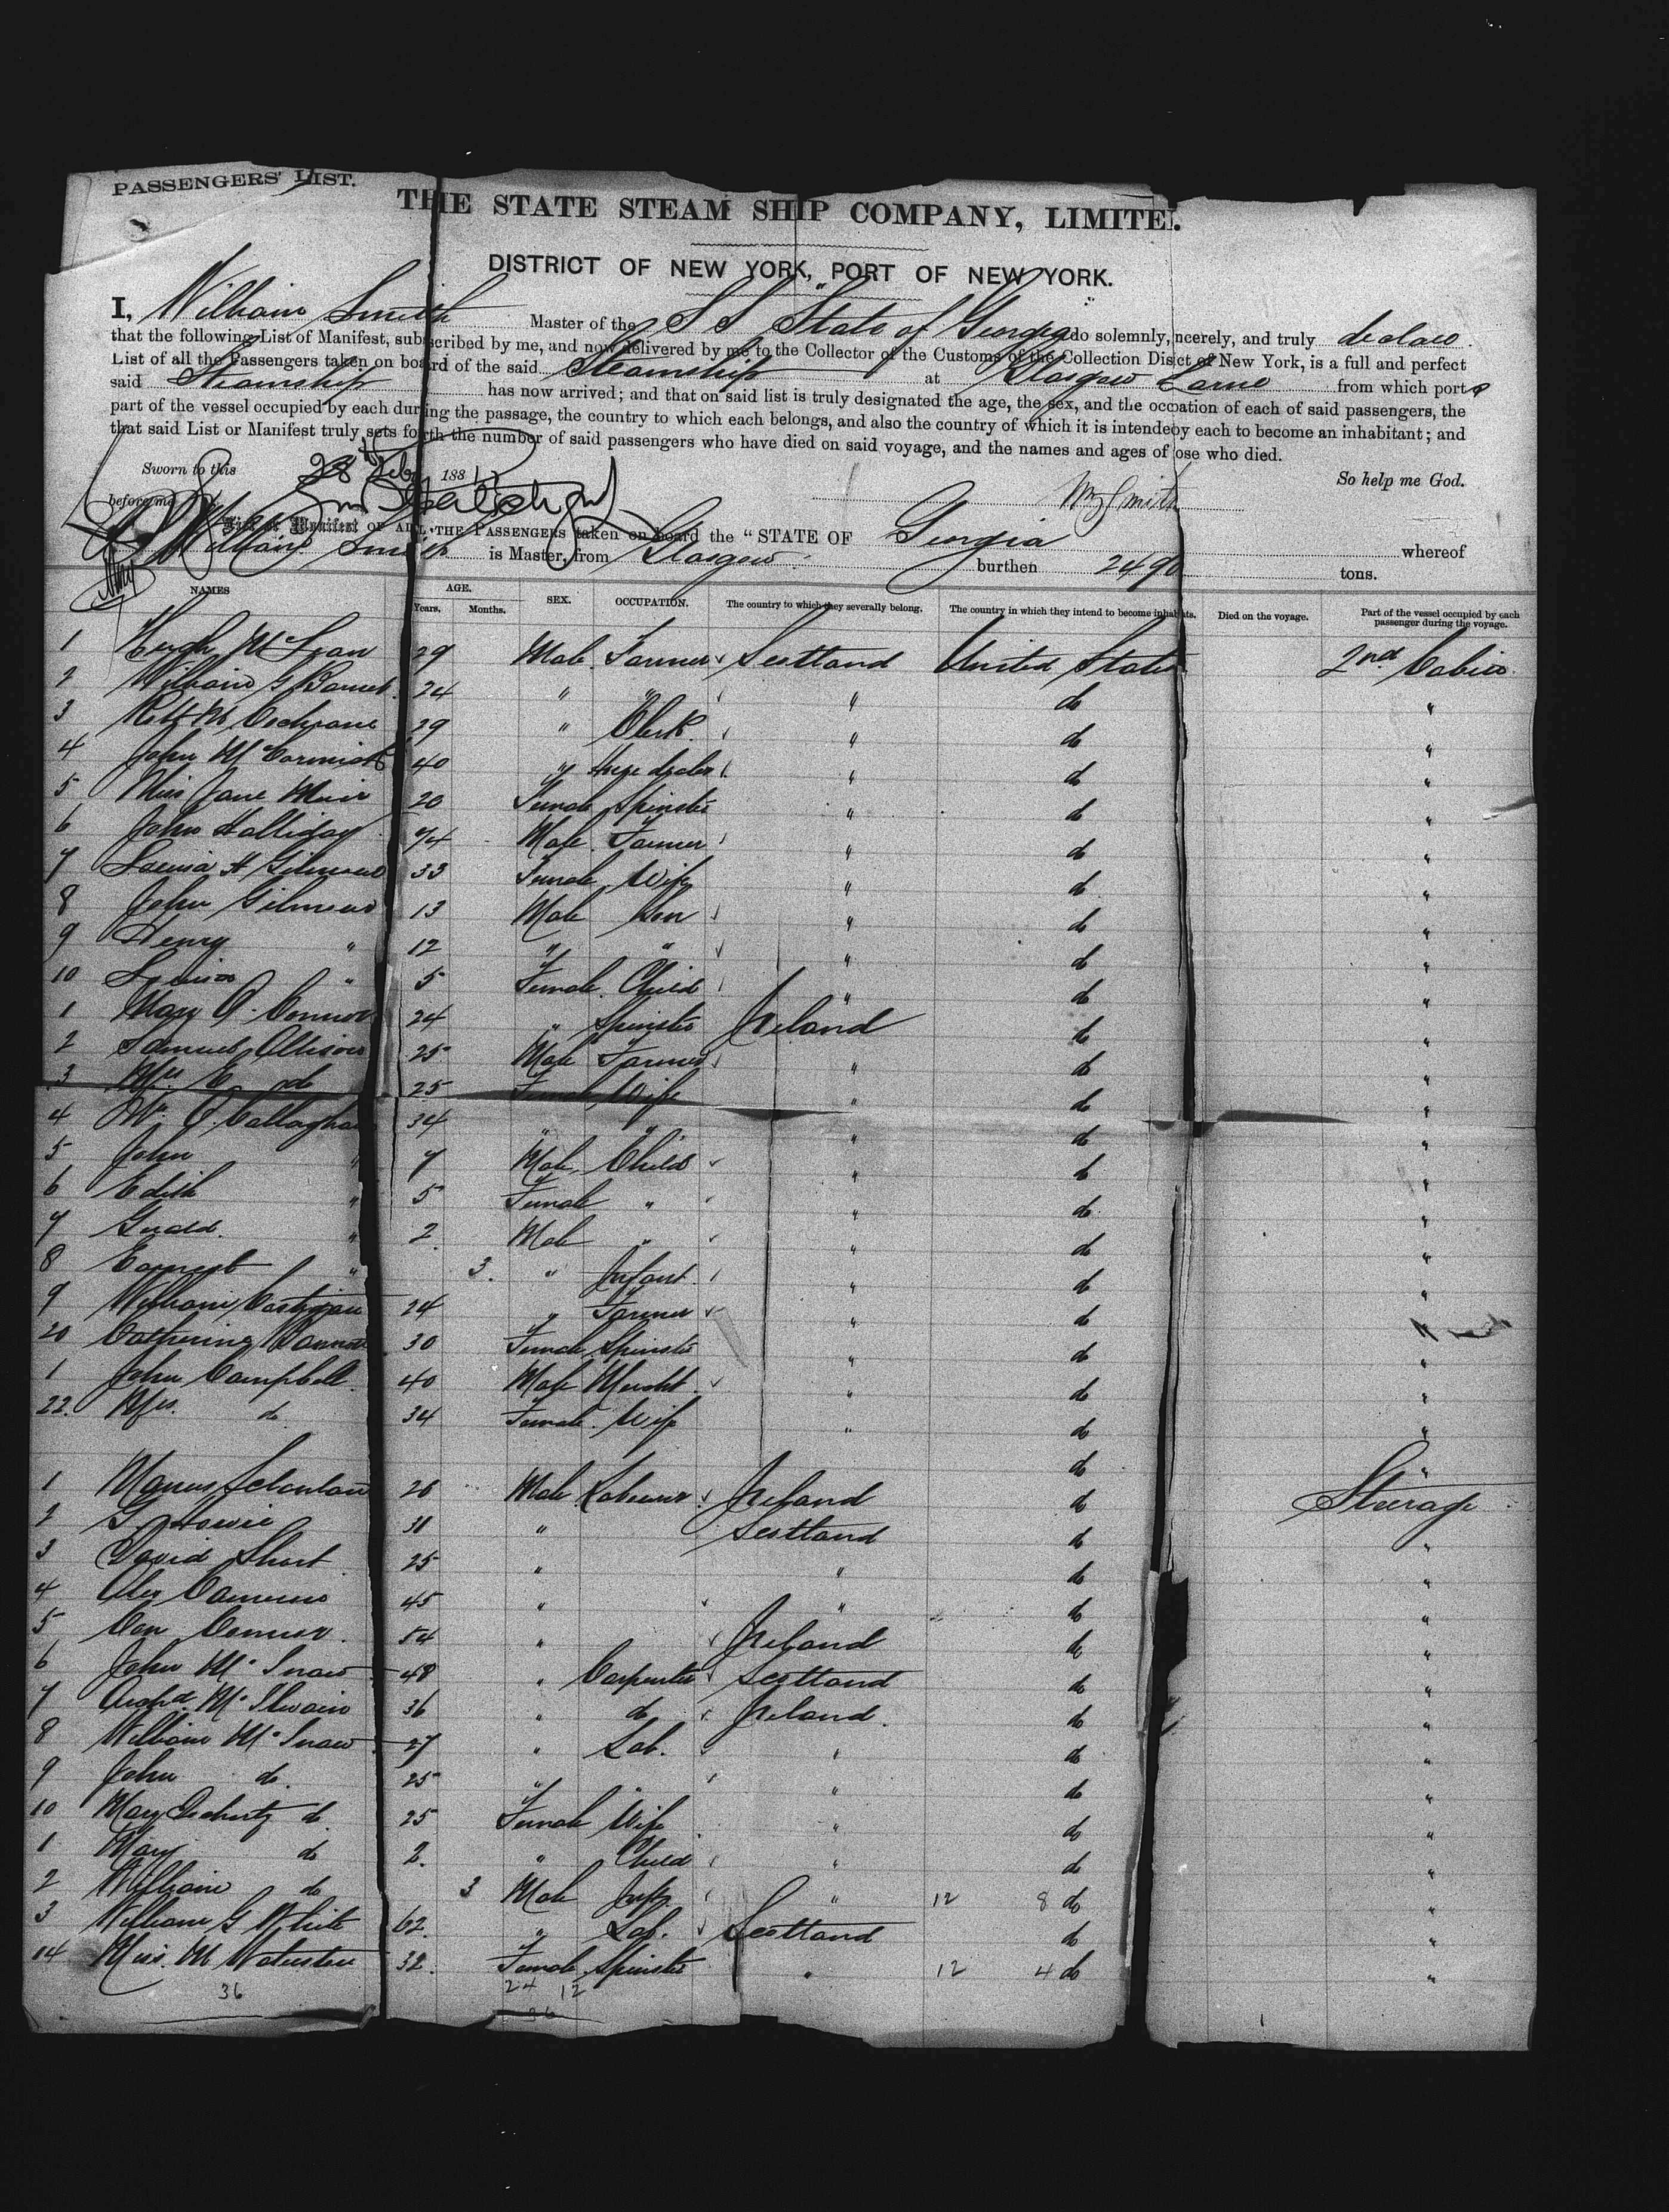 PASSENGERS' LIST.
THE STATE STEAM SHIP COMPANY, LIMITED.
DISTRICT OF NEW YORK, PORT OF NEW YORK.
I, William Smith Master of the S S "State of Georgia" do solemnly, sincerely, and truly declare
that the following List of Manifest, subscribed by me, and now delivered by me to the Collector of the Customs of the Collection District of New York, is a full and perfect
List of all the Passengers taken on board of the said Steamship at Glasgow Larne from which port
said Steamship has now arrived; and that on said list is truly designated the age, the sex, and the occupation of each of said passengers, the
part of the vessel occupied by each during the passage, the country to which each belongs, and also the country of which it is intended by each to become an inhabitant; and
that said List or Manifest truly sets forth the number of said passengers who have died on said voyage, and the names and ages of those who died.
Sworn to this 28th Feby 1881 So help me God.
before me Wm Smith
List or Manifest OF ALL THE PASSENGERS taken on board the "STATE OF Georgia whereof
William Smith is Master, from Glasgow burthen 2490 tons.
NAMES AGE. Years. Months. SEX. OCCUPATION. The country to which they severally belong. The country in which they intend to become inhabitants. Died on the voyage. Part of the vessel occupied by each passenger during the voyage.
1 Hugh McLean 29 Male Farmer Scotland United States 2nd Cabin
2 William G 24 " " " do "
3 Robt M Cochrane 29 " Clerk " do "
4 John McCormick 40 " dealer " do "
5 Miss Jane Muir 20 Female Spinster " do "
6 John Halliday 74 Male Farmer " do "
7 33 Female Wife " do "
8 John 13 Male Son " do "
9 Henry " 12 " " " do "
10 Louisa " 5 Female Child " do "
1 Mary O'Connor 24 " Spinster Ireland do "
2 Samuel Allison 25 Male Farmer " do "
3 Mrs E do 25 Female Wife " do "
4 O'Callaghan 34 " " " do "
5 John " 7 Male Child " do "
6 Edith " 5 Female " " do "
7 " 2 Male " " do "
8 Earnest " 3 " Infant " do "
9 William Costigan 24 " Farmer " do "
20 Catherine 30 Female Spinster " do "
1 John Campbell 40 Male Mercht " do "
22 Mrs. do 34 Female Wife " do "
do "
1 26 Male Labourer Ireland do Steerage
2 G. Howie 31 " Scotland do "
3 David Short 25 " " do "
4 Alex Cameron 45 " " do "
5 Con Connor 54 " Ireland do "
6 John 48 " Carpenter Scotland do "
7 Archd. McIlwain 36 " do Ireland do "
8 William 27 " Lab. " do "
9 John do 25 " " do "
10 Mary Docherty do 25 Female Wife " do "
1 Mary do 2 " Child " do "
2 William do 3 Male Inft. " 12 8 do "
3 William G White 62 " Lab. Scotland do "
14 Miss M 32 Female Spinster " 12 4 do "
36 24 12
36